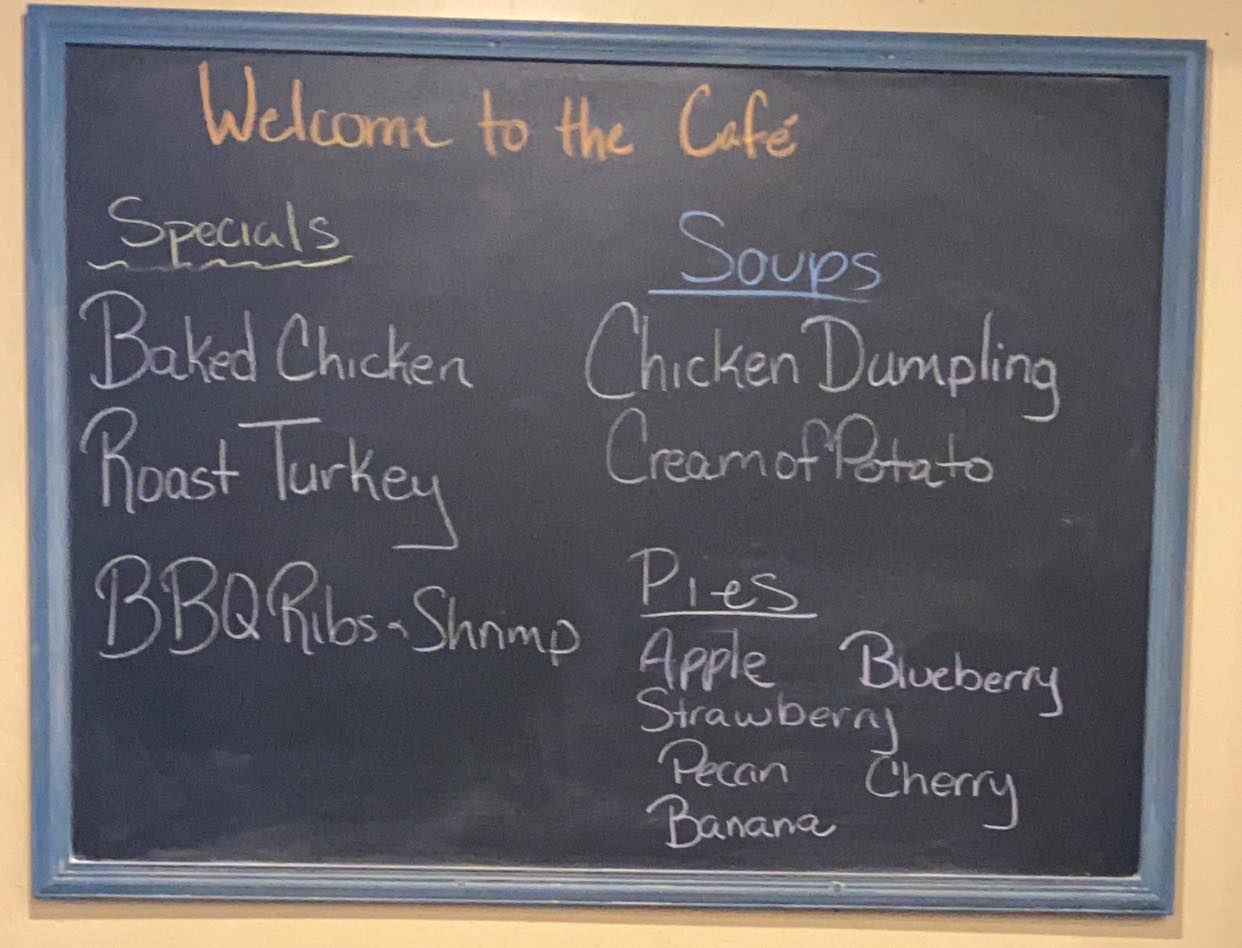 Welcome to the Café
Specials
Baked Chicken
Roast Turkey
BBQ Ribs & Shrimp
Soups
Chicken Dumpling
Cream of Potato
Pies
Apple Blueberry
Strawberry
Pecan Cherry
Banana